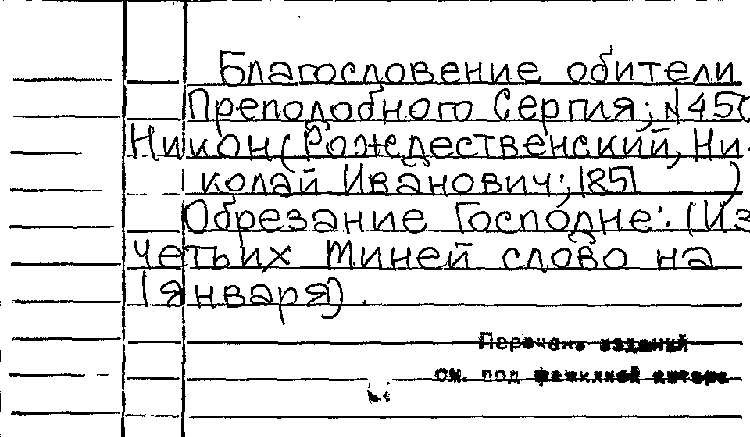 Благословение обители
Преподобного Сергия; №450
Никон (Рождественский, Ни-
колай Иванович; 1851 )
Обрезание Господне: (Из
четьих Миней слово на
1 января).
Перечень изданий
см. под фамилией автора